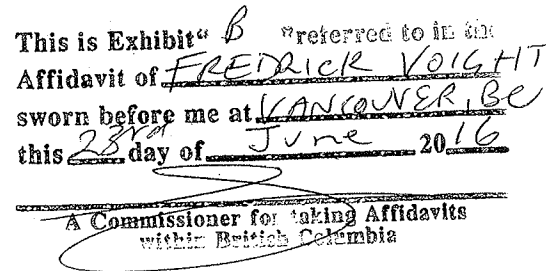 This is Exhibit “ B ” referred to in the
Affidavit of FREDRICK VOIGHT
sworn before me at VANCOUVER, BC
this 23rd day of June 2016
A Commissioner for taking Affidavits
within British Columbia